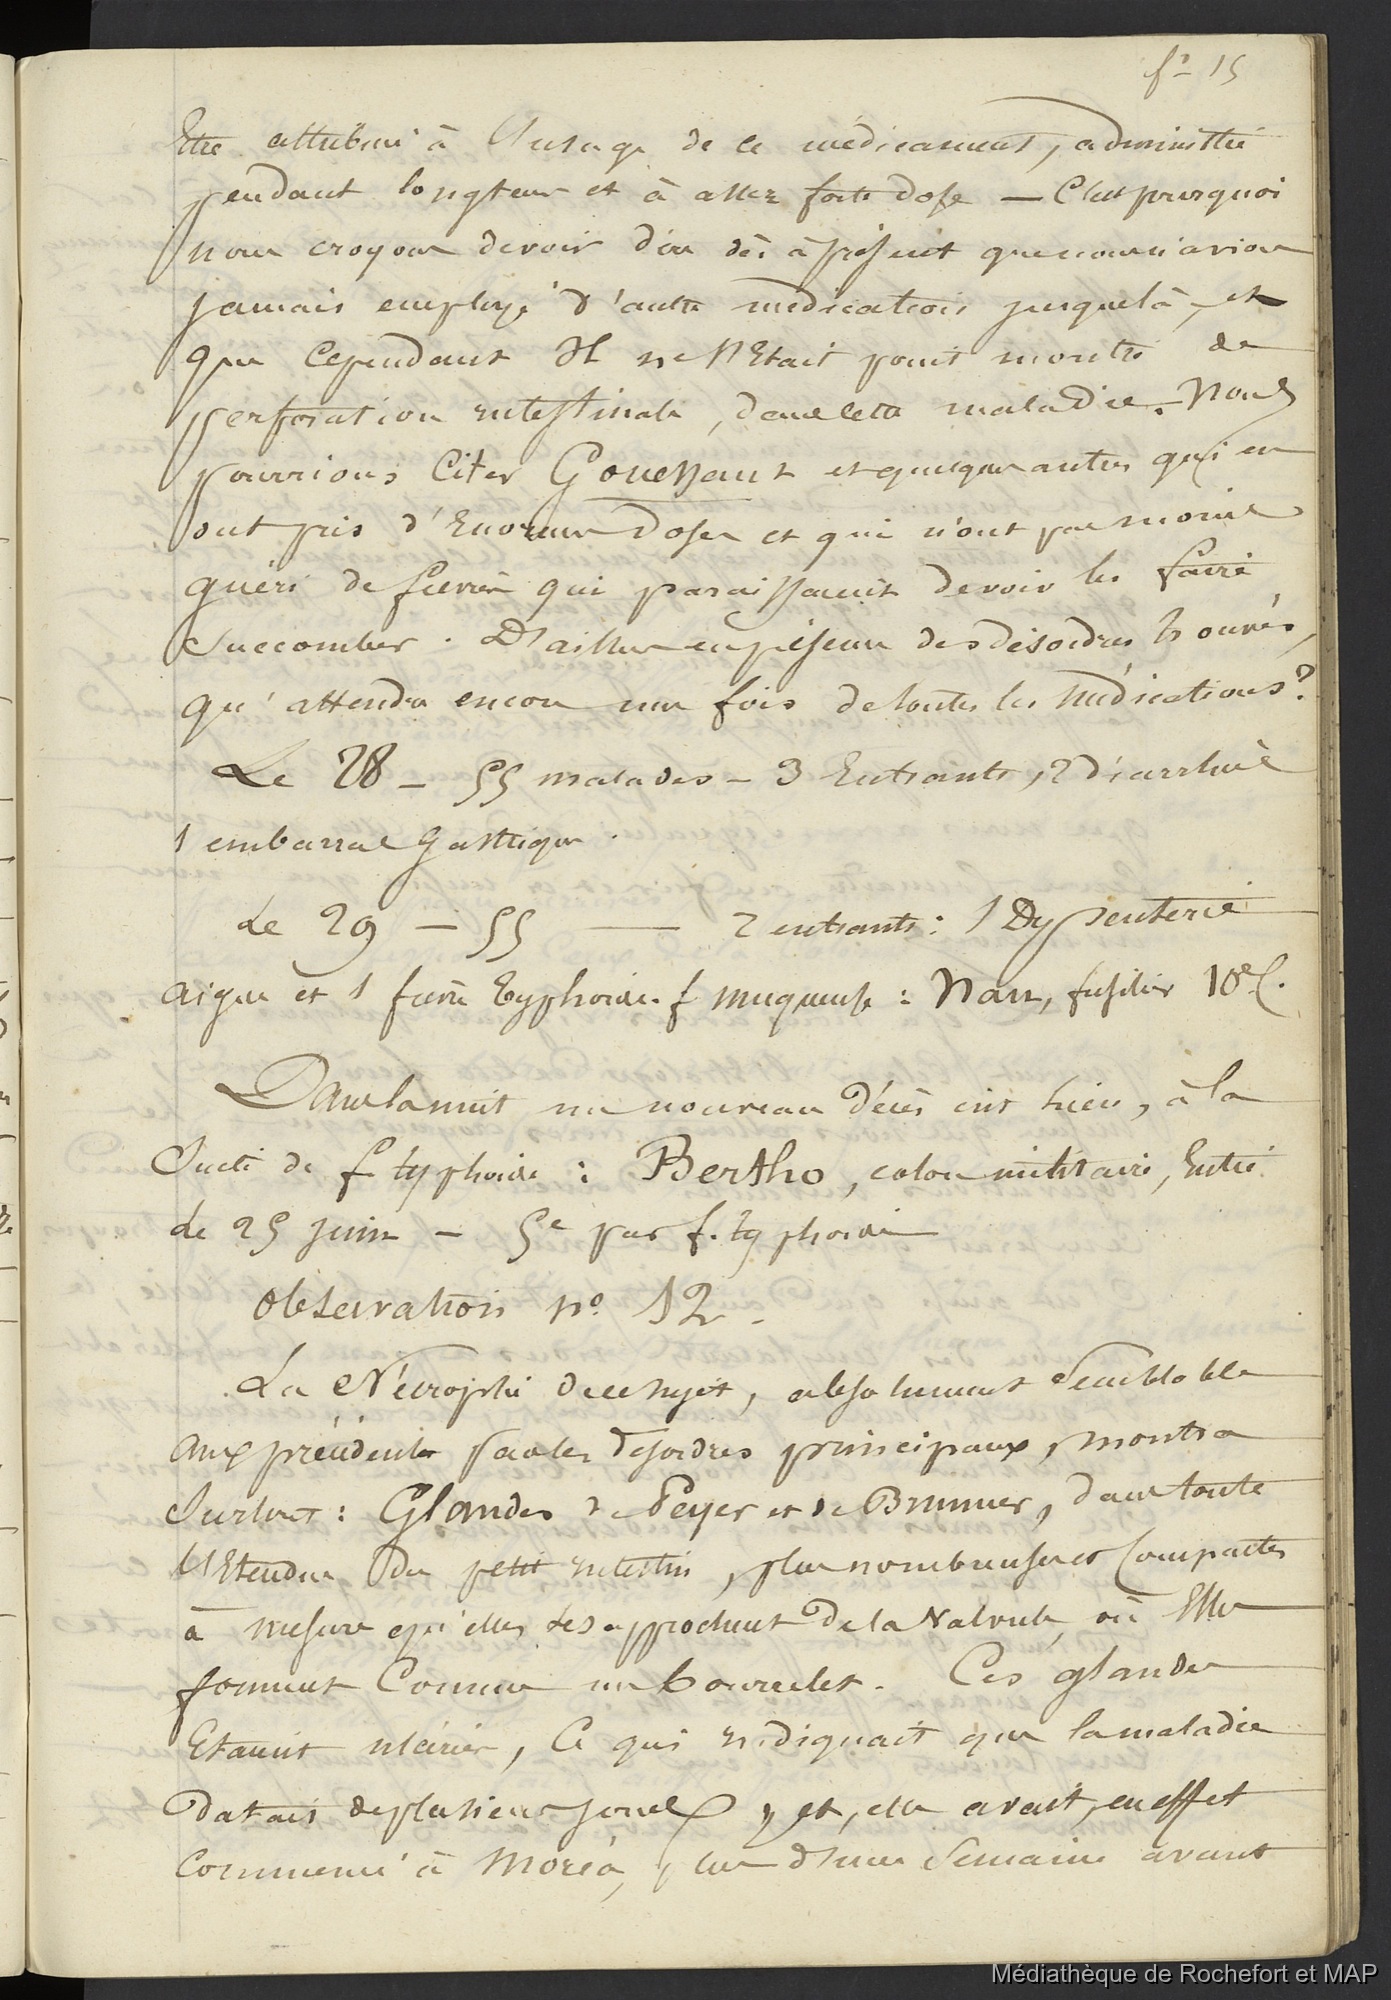 fo 15
Etre attribué à l'usage de ce médicament, administré
pendant longtems et à assez forte dose — C'est pourquoi
nous croyons devoir dire dès à présent que nous n'avions
jamais employé d'autre médication jusque là, et
que cependant Il ne s'Etait point montré de
perforation intestinale, dans cette maladie. Nous
pourrions Citer Gouessant et quelques autres qui en
ont pris d'Enormes doses et qui n'ont pas moins
guéri de fièvres qui paraissaient devoir les faire
Succomber. D'ailleurs en présence des désordres trouvés,
qu'attendre encore une fois de toutes les Médications?
Le 28 — 55 malades — 3 Entrants, 2 diarrhée
1 embarras Gastrique.
Le 29 — 55 — 2 entrants: 1 Dyssenterie
aigue et 1 fièvre typhoide. f muqueuse: Nau, fusilier 10e C.
Dans la nuit un nouveau décès eut lieu, à la
Suite de f typhoide: Bertho, colon militaire, Entré
Le 25 juin — 5e par f. typhoide
Observation no 12.
La Nécropsie de ce sujet, absolument Semblable
aux précédentes par les désordres principaux, montra
Surtout: Glandes de Peyer et de Brunner, dans toute
l'Etendue du petit intestin, plus nombreuses et Compactes
à mesure qu'elles se rapprochent de la Valvule, où Elles
forment Comme un bourrelet. Ces glandes
Etaient ulcérées, Ce qui indiquait que la maladie
datait de plusieurs jours, et, elle avait, en effet
Commencé à Moréa, plus d'une Semaine avant
Médiathèque de Rochefort et MAP